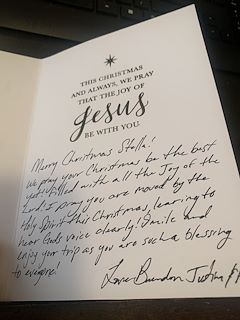 THIS CHRISTMAS
AND ALWAYS, WE PRAY
THAT THE JOY OF
Jesus
BE WITH YOU.
Merry Christmas Stella!
We pray your Christmas be the best
yet & filled with all the Joy of the
Lord. I pray you are moved by the
Holy Spirit this Christmas, learning to
hear Gods voice clearly! Smile and
enjoy your trip as you are such a blessing
to everyone!
Love Brandon, Justina